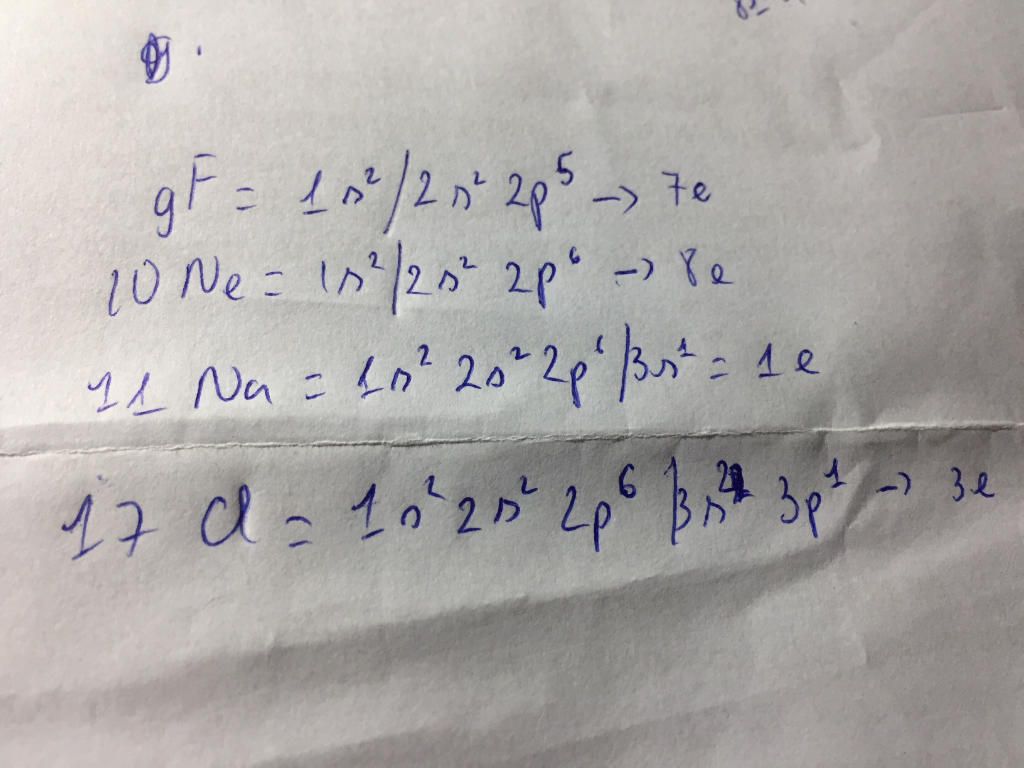 9F = 1s² / 2s² 2p⁵ → 7e
10 Ne = 1s² / 2s² 2p⁶ → 8e
11 Na = 1s² 2s² 2p⁶ / 3s¹ = 1e
17 Cl = 1s² 2s² 2p⁶ / 3s² 3p¹ → 3e